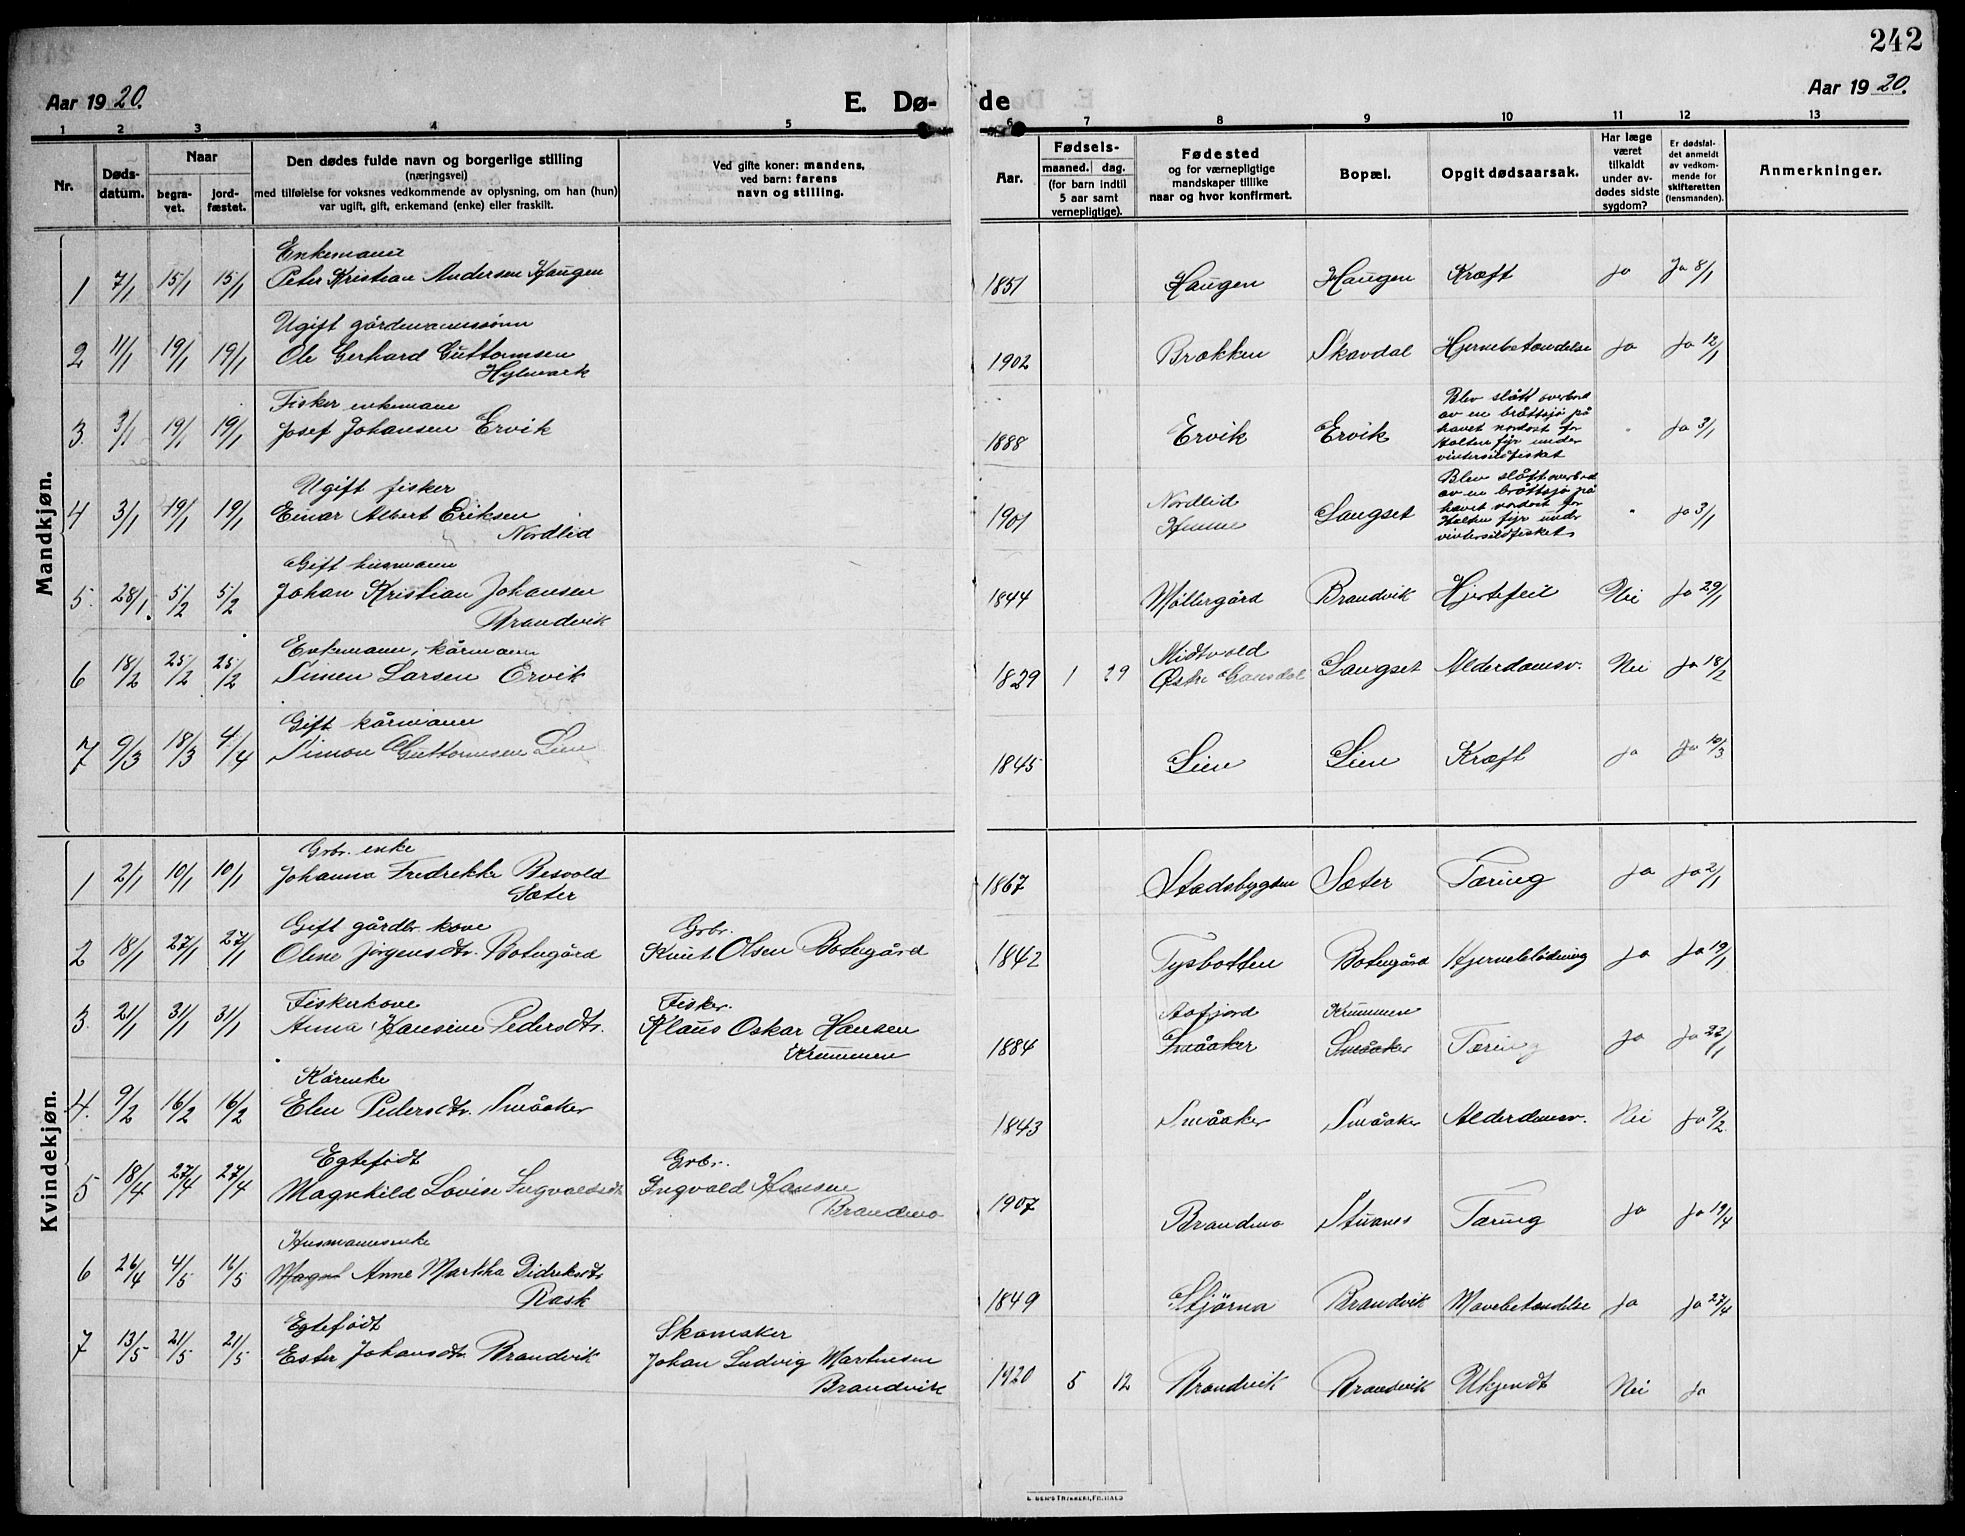 242
Aar 1920. E. Dø- de Aar 1920.
1 2 3 4 5 6 7 8 9 10 11 12 13
Nr.
Døds-
datum.
Naar
begra-
vet.
jord-
fæstet.
Den dødes fulde navn og borgerlige stilling
(næringsvei)
med tilføielse for voksnes vedkommende av oplysning, om han (hun)
var ugift, gift, enkemand (enke) eller fraskilt.
Ved gifte koner: mandens,
ved barn: farens
navn og stilling.
Aar.
Fødsels-
maaned. dag.
(for barn indtil
5 aar samt
vernepligtige).
Fødested
og for værnepligtige
mandskaper tillike
naar og hvor konfirmert.
Bopæl.
Opgit dødsaarsak.
Har læge
været
tilkaldt
under av-
dødes sidste
sygdom?
Er dødsfal-
det anmeldt
av vedkom-
mende for
skifteretten
(lensmanden).
Anmerkninger.
Mandkjøn.
Enkemann
1 7/1 15/1 15/1 Peter Kristian Andersen Haugen 1851 Haugen Haugen Kræft ja Ja 8/1
Ugift gårdmannssönn
2 11/1 19/1 19/1 Ole Gerhard Guttormsen 1902 Brækken Skavdal Hjernebetændelse ja ja 12/1
Hylmark
Fisker enkemann
3. 3/1 19/1 19/1 Josef Johansen Ervik 1888 Ervik Ervik " ja 3/1
Blev slått overbord
av en bråttsjö på
havet nordost for
Halten fyr under
vintersildfisket
Ugift fisker
4 3/1 19/1 19/1 Einar Albert Eriksen 1901 Nordlid Langset " ja 3/1
Nordlid Hemne
Blev slått overbord
av en bråttsjö på
havet nordost for
Halten fyr under
vintersildfisket
Gift husmann
5. 28/1. 5/2 5/2 Johan Kristian Johansen 1844 Møllergård Brandvik Hjertefeil Nei ja 29/1
Brandvik
Enkemann, kårmann Midtvold
6 18/2 25/2 25/2 Simen Larsen Ervik 1829 1 29 Østre Gausdal Langset Alderdomsv. Nei ja 18/2
Gift kårmann
7 9/3 18/3 4/4 Simon Guttormsen Lien 1845 Lien Lien Kræft ja ja 10/3
Kvindekjøn.
Grbr. enke
1 2/1 10/1 10/1 Johanna Fredrekke Besvold 1867 Stadsbygden Sæter Tæring ja ja 2/1
Sæter
Gift gårdbr. kone Grbr.
2 18/1 27/1 27/1 Oline Jörgensdtr. Botngård Knut Olsen Botngård 1842 Tysbotten Botngård Hjerneblödning ja ja 19/1
Fiskerkone Fisker. Aafjord Krummen
3. 21/1 31/1 31/1 Anna Hansine Pedersdtr. Klaus Oskar Hansen 1884 Småaker Småaker Tæring ja ja 22/1
Krummen
Kårenke
4. 9/2 16/2 16/2 Elen Pedersdtr. Småaker 1843 Småaker Småaker Alderdomsv. Nei ja 9/2
Egtefödt Grbr.
5 18/4 27/4 27/4 Magnhild Lovise Ingvaldsdtr. Ingvald Hansen 1907 Brandmo Stuanes Tæring ja ja 19/4
Brandmo
Husmannsenke
6 26/4 4/5 16/5 Magnh Anne Martha Didriksdtr. 1849 Stjørna Brandvik Mavebetændelse ja ja 27/4
Rask
Egtefödt Skomaker
7 13/5 21/5 21/5 Ester Johansdtr. Brandvik Johan Ludvig Martinsen 1920 5 12 Brandvik Brandvik Ukjendt Nei ja
Brandvik